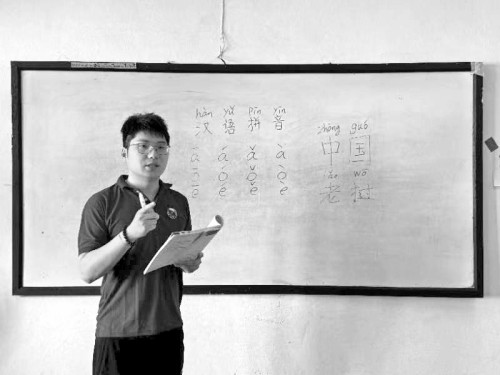 hàn yǔ pīn yīn
汉 语 拼 音
ā á ǎ à
ō ó ǒ ò
ē é ě è
zhōng guó
中 国
wǒ
老